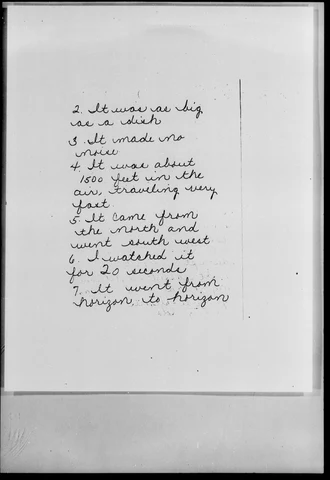 2. It was as big
as a dish
3. It made no
noise
4. It was about
1500 feet in the
air, traveling very
fast
5. It came from
the north and
went south west
6. I watched it
for 20 seconds
7. It went from
horizon to horizon